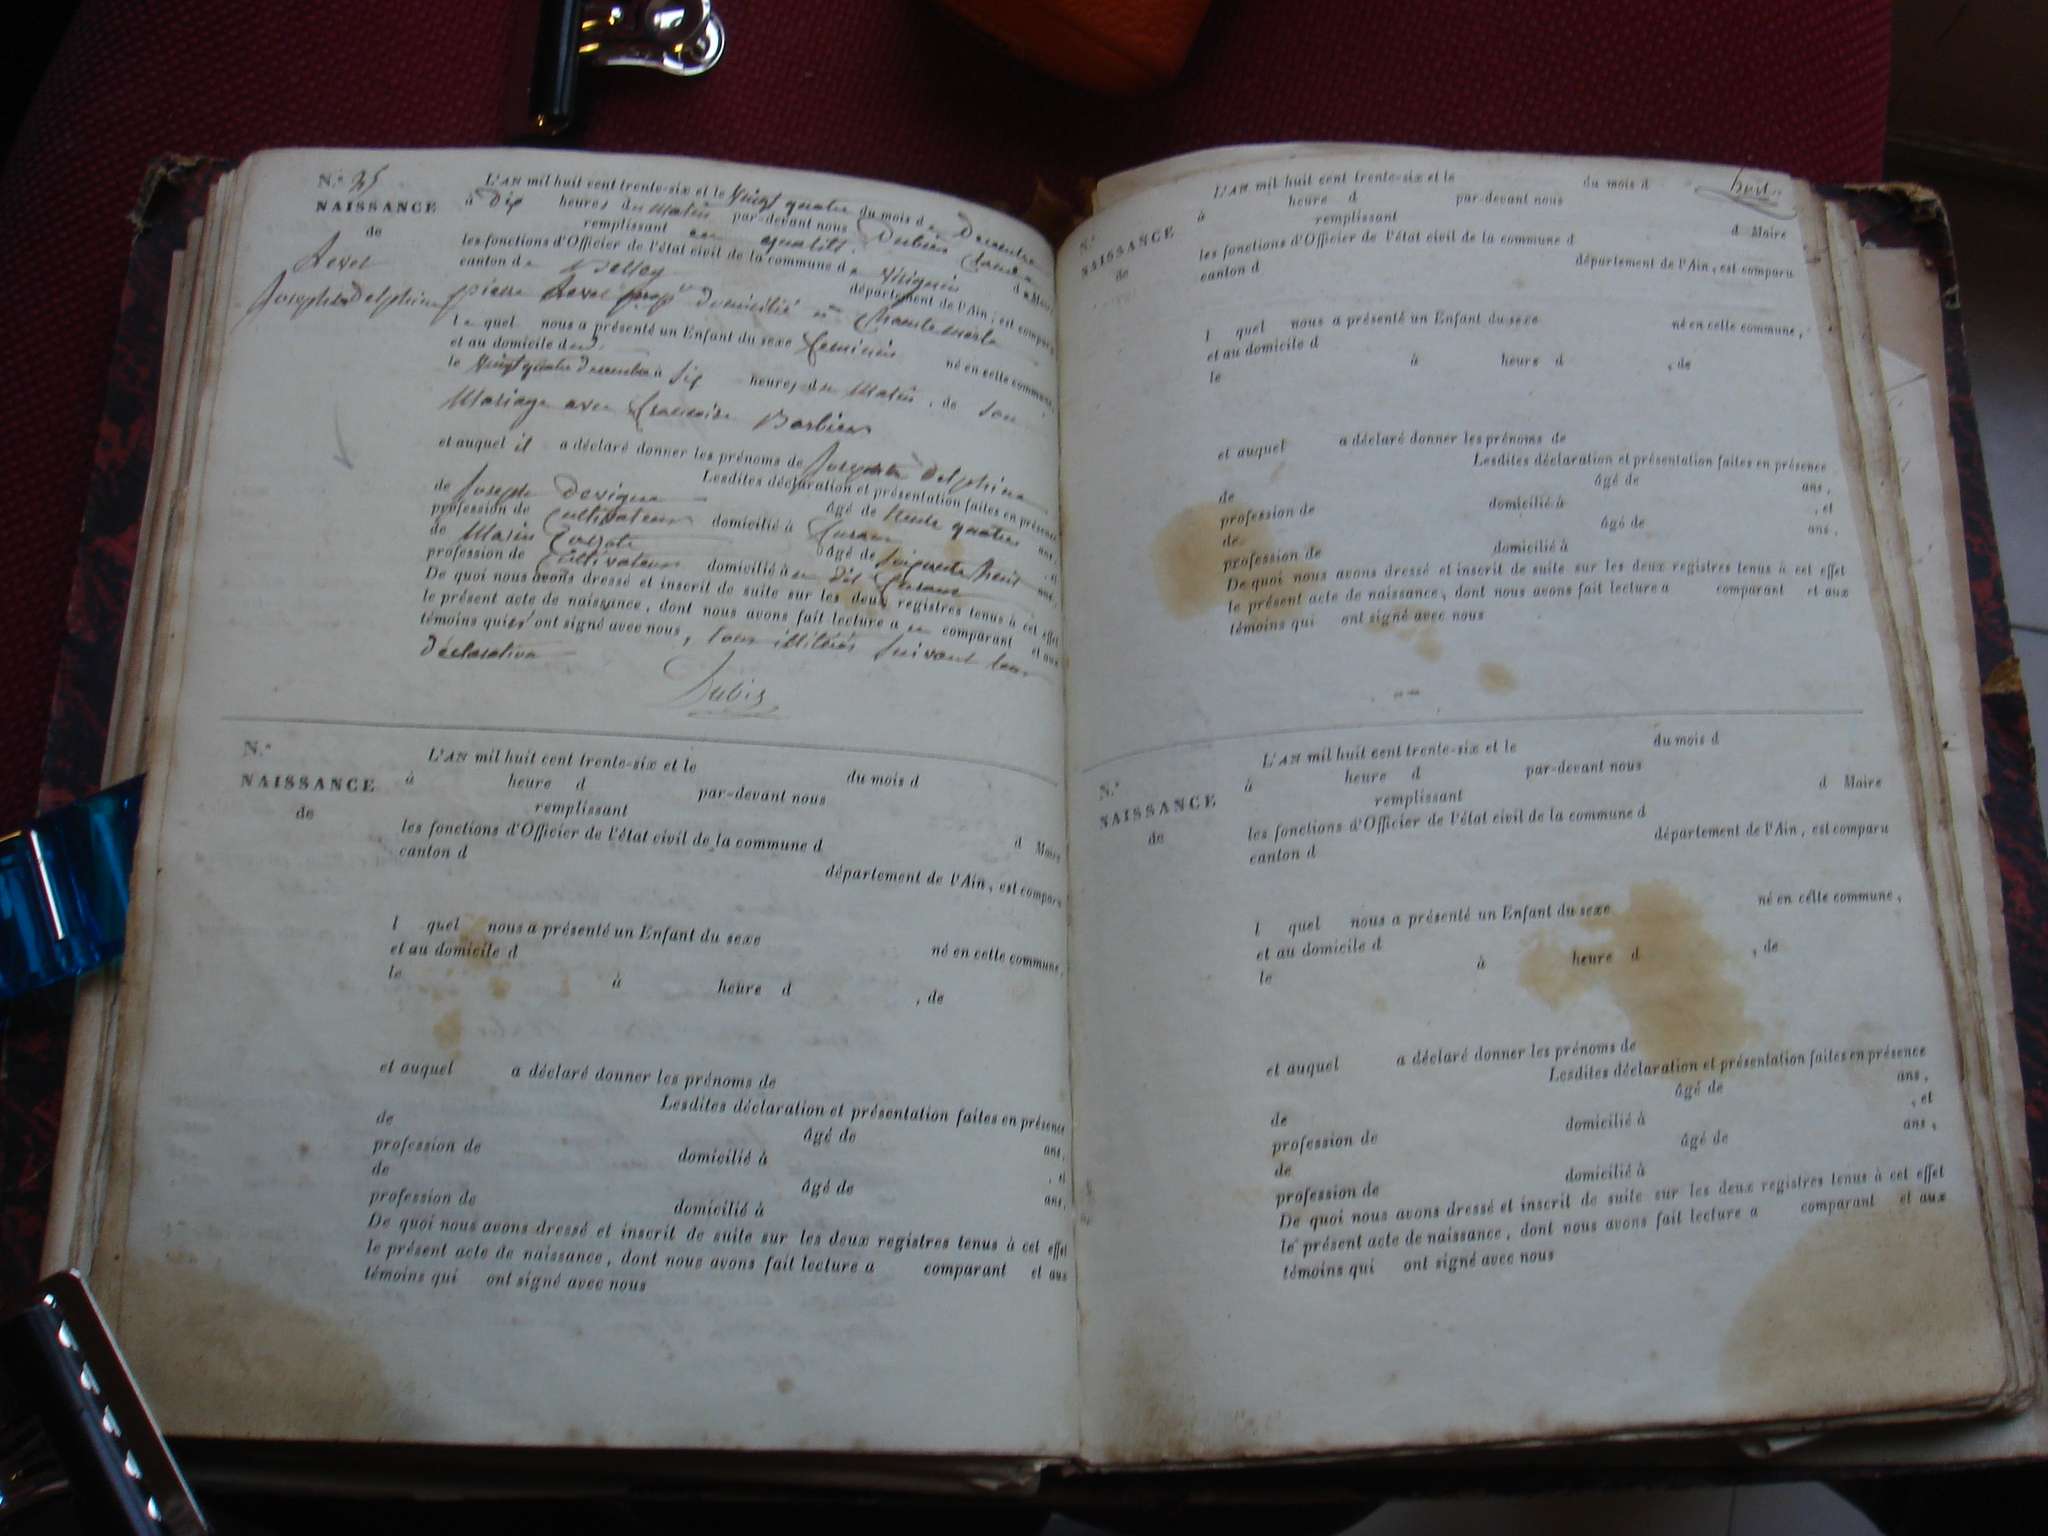 N.° 25
NAISSANCE
de
Revel
Josephte Delphine
L'AN mil huit cent trente-six et le Vingt quatre du mois de Décembre
à Dix heures du matin par-devant nous Dubis
remplissant en qualité de Maire
les fonctions d'Officier de l'état civil de la commune de Virignin
canton de Belley département de l'Ain, est comparu
pierre Revel domicilié à
le quel nous a présenté un Enfant du sexe feminin né en cette commune,
et au domicile d
le Vingt quatre Décembre à Six heures du Matin, de Son
Mariage avec françoise Barbier
et auquel il a déclaré donner les prénoms de Josephte Delphine
Lesdites déclaration et présentation faites en présence
de Joseph âgé de trente quatre ans,
profession de Cultivateur domicilié à , et
de Marin âgé de Soixante huit ans,
profession de Cultivateur domicilié à au dit
De quoi nous avons dressé et inscrit de suite sur les deux registres tenus à cet effet
le présent acte de naissance, dont nous avons fait lecture au comparant et aux
témoins qui n' ont signé avec nous, tous illitérés suivant leur
déclaration
Dubis
N.°
NAISSANCE
de
L'AN mil huit cent trente-six et le du mois d
à heure d par-devant nous
remplissant d Maire
les fonctions d'Officier de l'état civil de la commune d
canton d département de l'Ain, est comparu
l quel nous a présenté un Enfant du sexe né en cette commune,
et au domicile d
le à heure d , de
et auquel a déclaré donner les prénoms de
Lesdites déclaration et présentation faites en présence
de âgé de ans,
profession de domicilié à , et
de âgé de ans,
profession de domicilié à
De quoi nous avons dressé et inscrit de suite sur les deux registres tenus à cet effet
le présent acte de naissance, dont nous avons fait lecture a comparant et aux
témoins qui ont signé avec nous
huit
N.°
NAISSANCE
de
L'AN mil huit cent trente-six et le du mois d
à heure d par-devant nous
remplissant d Maire
les fonctions d'Officier de l'état civil de la commune d
canton d département de l'Ain, est comparu
l quel nous a présenté un Enfant du sexe né en cette commune,
et au domicile d
le à heure d , de
et auquel a déclaré donner les prénoms de
Lesdites déclaration et présentation faites en présence
de âgé de ans,
profession de domicilié à , et
de âgé de ans,
profession de domicilié à
De quoi nous avons dressé et inscrit de suite sur les deux registres tenus à cet effet
le présent acte de naissance, dont nous avons fait lecture a comparant et aux
témoins qui ont signé avec nous
N.°
NAISSANCE
de
L'AN mil huit cent trente-six et le du mois d
à heure d par-devant nous
remplissant d Maire
les fonctions d'Officier de l'état civil de la commune d
canton d département de l'Ain, est comparu
l quel nous a présenté un Enfant du sexe né en cette commune,
et au domicile d
le à heure d , de
et auquel a déclaré donner les prénoms de
Lesdites déclaration et présentation faites en présence
de âgé de ans,
profession de domicilié à , et
de âgé de ans,
profession de domicilié à
De quoi nous avons dressé et inscrit de suite sur les deux registres tenus à cet effet
le présent acte de naissance, dont nous avons fait lecture a comparant et aux
témoins qui ont signé avec nous